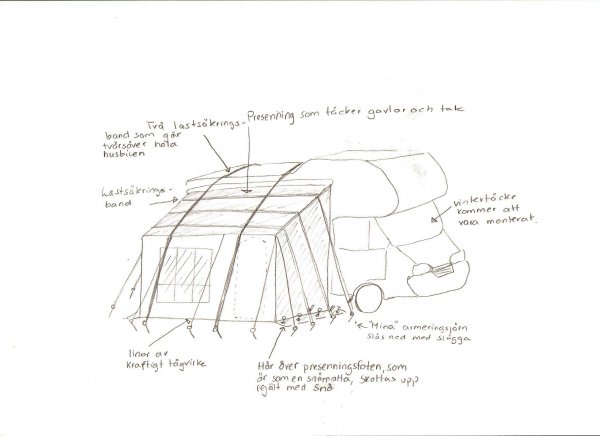 Två lastsäkrings-
band som går
tvärsöver hela
husbilen
Presenning som täcker gavlar och tak
Lastsäkrings-
band
vintertäcke
kommer att
vara monterat.
"Mina" armeringsjärn
slås ned med slägga
linor av
kraftigt tågvirke
Här över presenningsfoten, som
är som en snömatta, skottas upp
rejält med snö